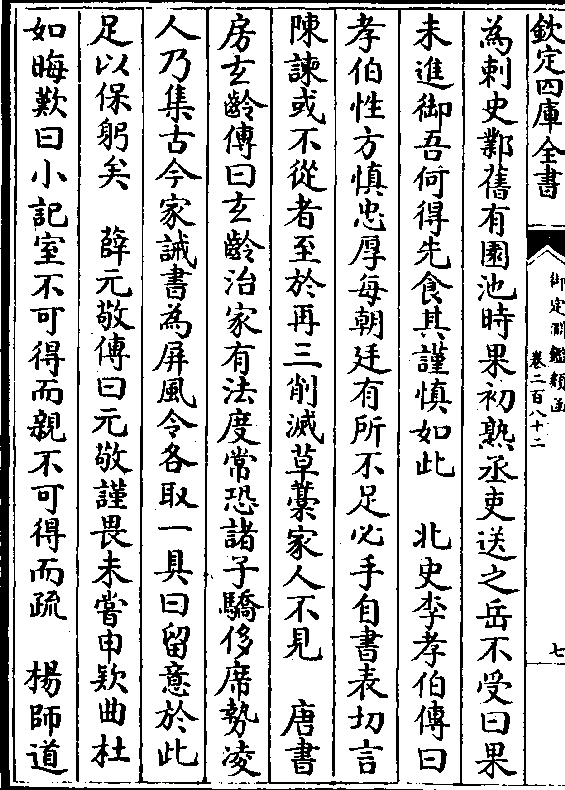 欽定四庫全書
御定淵鑑類函
卷二百八十二
七
為刺史鄴舊有園池時果初熟丞吏送之岳不受曰果
未進御吾何得先食其謹慎如此　北史李孝伯傳曰
孝伯性方慎忠厚每朝廷有所不足必手自書表切言
陳諫或不從者至於再三削滅草藳家人不見　唐書
房玄齡傳曰玄齡治家有法度常恐諸子驕侈席勢凌
人乃集古今家誡書為屏風令各取一具曰留意於此
足以保躬矣　薛元敬傳曰元敬謹畏未嘗申欵曲杜
如晦歎曰小記室不可得而親不可得而疏　楊師道